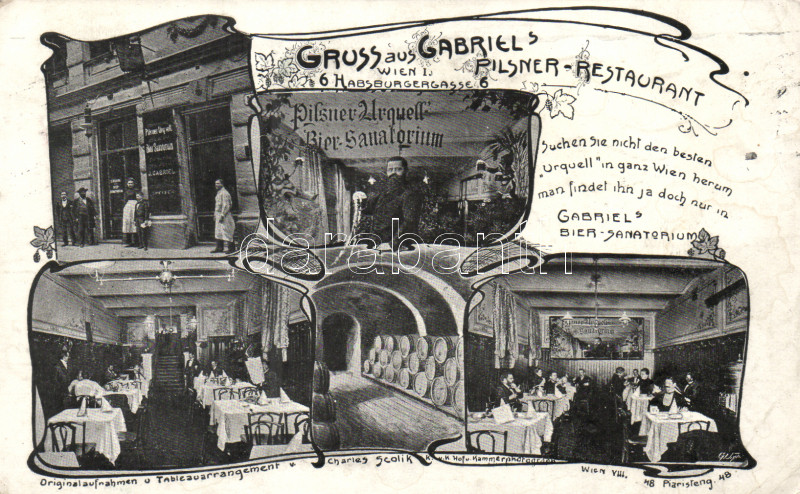 GRUSS aus GABRIELS
PILSNER-RESTAURANT
WIEN I.
6 HABSBURGERGASSE 6
Pilsner Urquell
Bier-Sanatorium
Suchen Sie nicht den besten
"Urquell" in ganz Wien herum
man findet ihn ja doch nur in
GABRIELS
BIER-SANATORIUM
Pilsner Urquell
Bier Sanatorium
J. GABRIEL
carabanti
Pilsner Urquell
Sanatorium
Originalaufnahmen u Tableauarrangement v. Charles Scolik k. u. k. Hof u. Kammerphotograph Wien VIII. 48 Piaristeng. 48